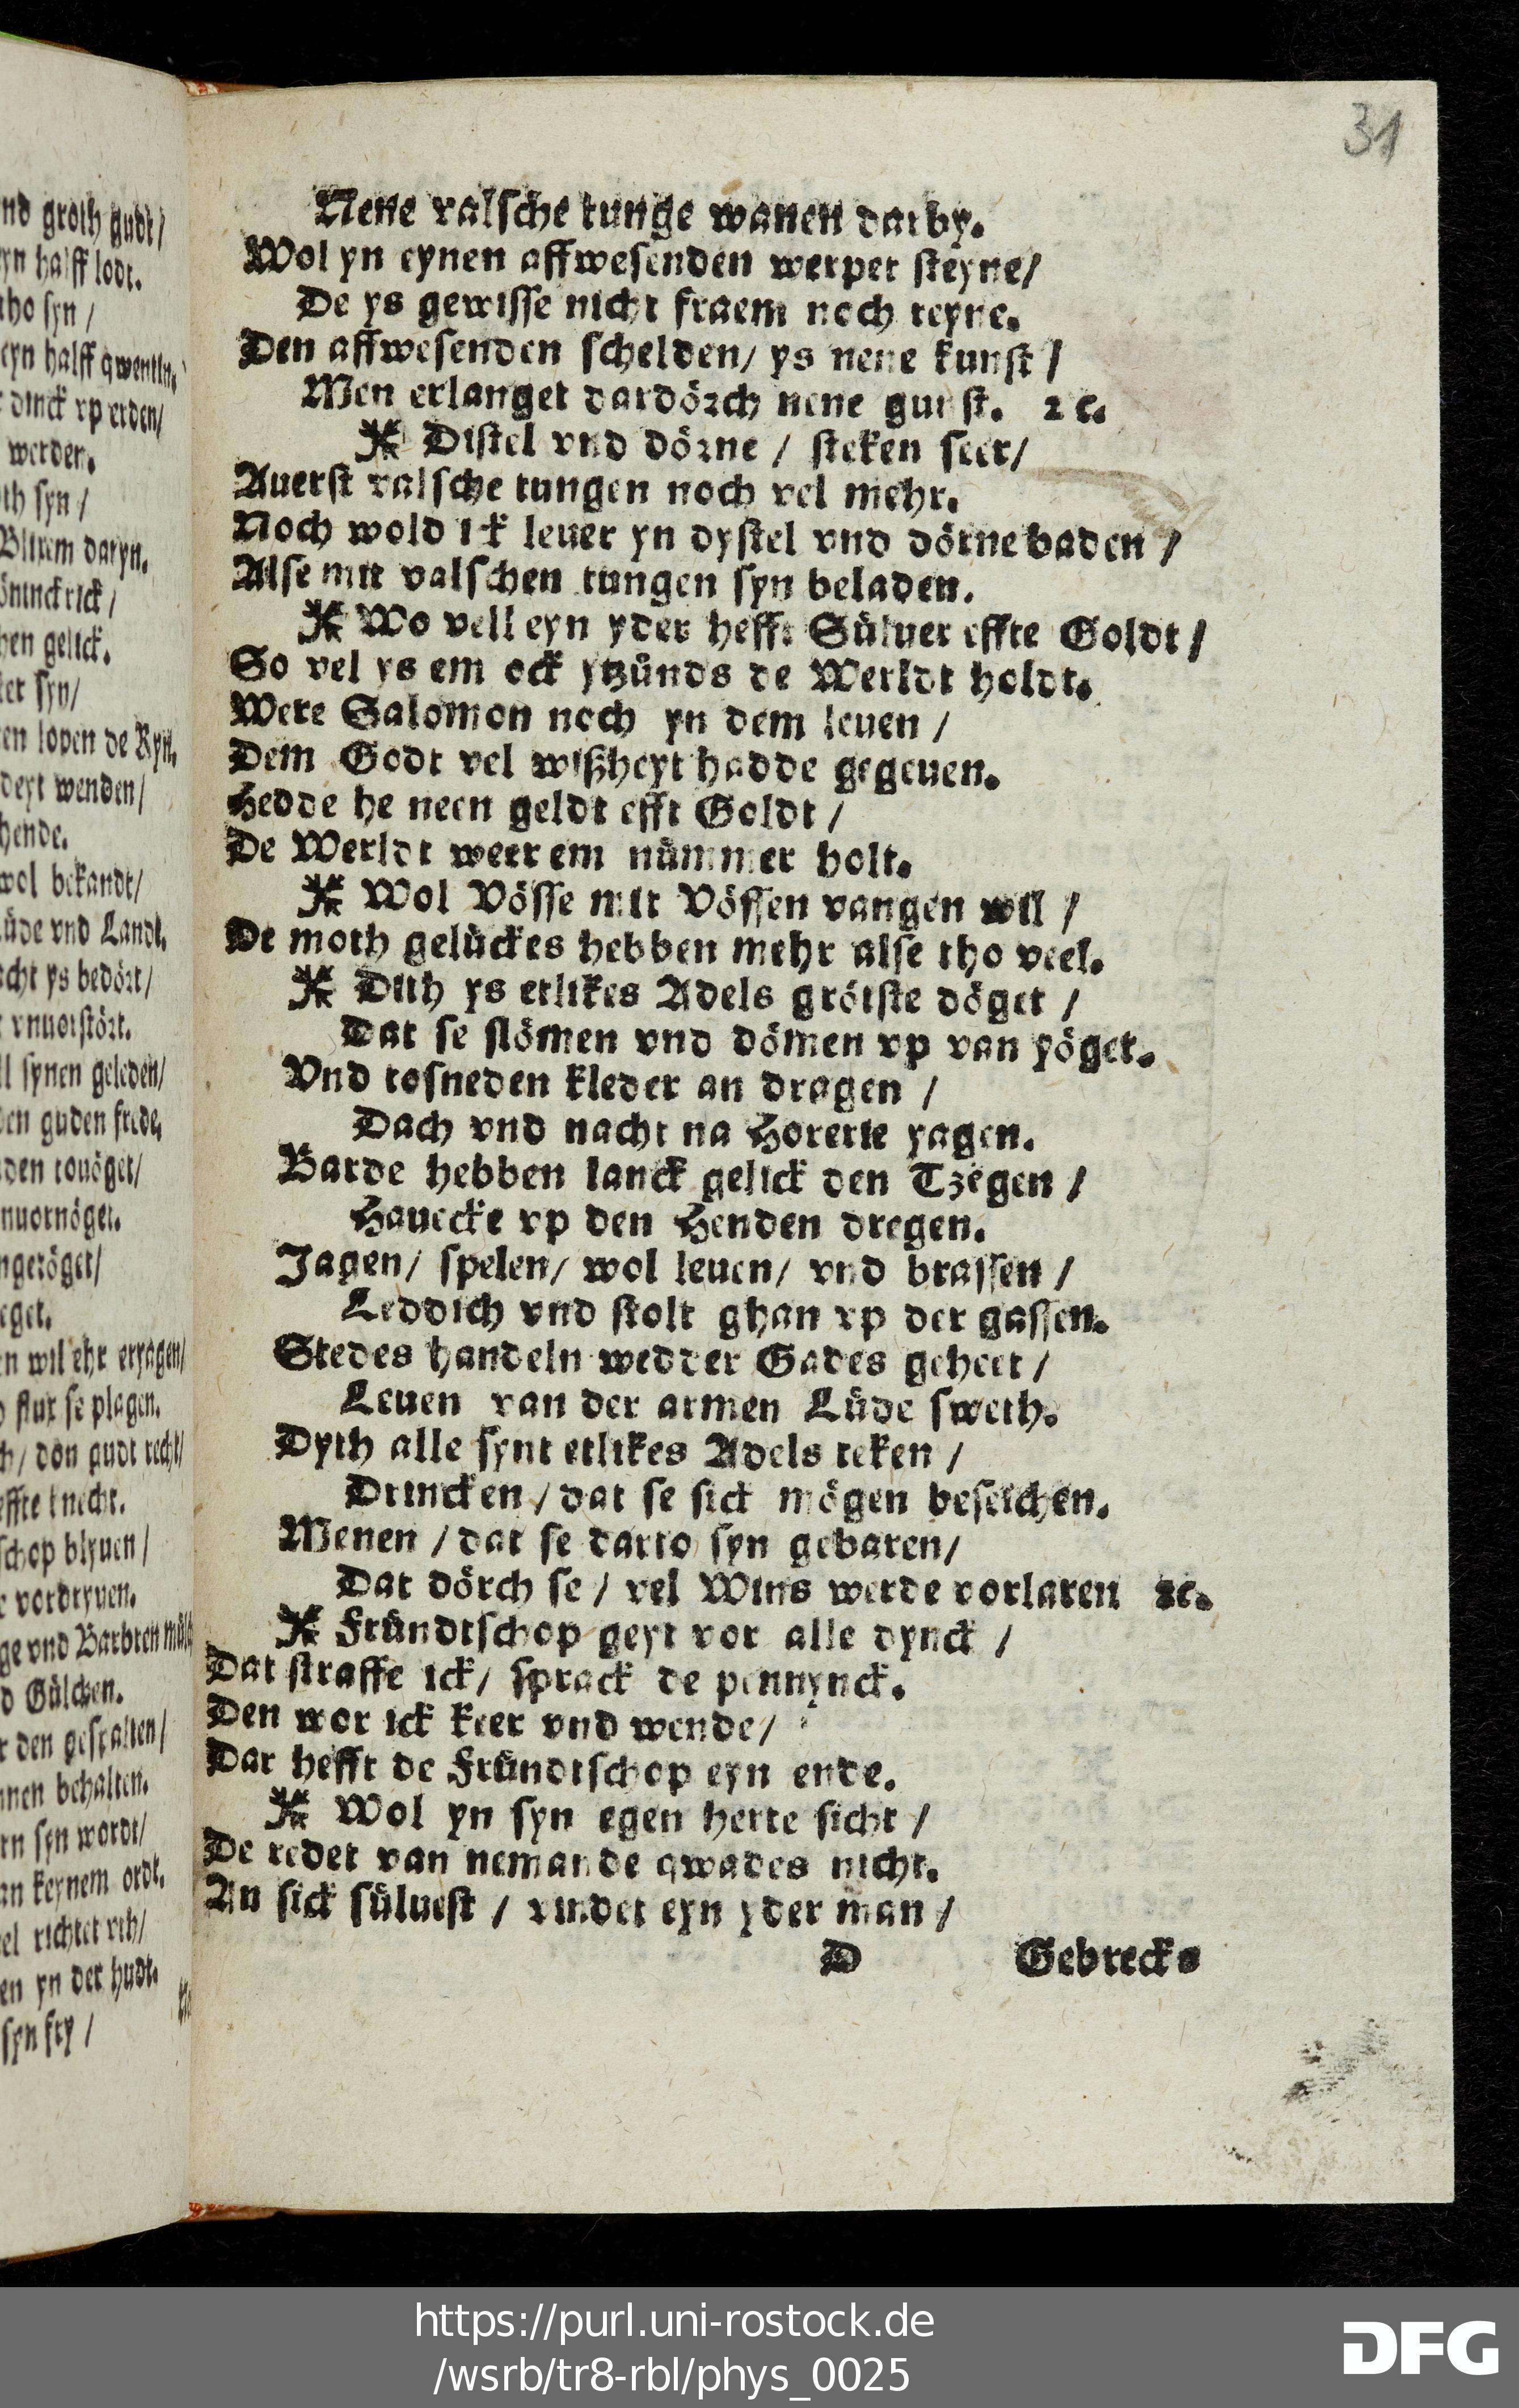 31
Nene valsche tunge wanen darby.
Wol yn eynen affwesenden werpet steyne/
De ys gewisse nicht fraem noch reyne.
Den affwesenden schelden/ ys nene kunst /
Men erlanget dardörch nene gunst. ꝛc.
Distel vnd dörne / steken seer/
Auerst valsche tungen noch vel mehr.
Noch wold ick leuer yn dystel vnd dörne baden /
Alse mit valschen tungen syn beladen.
Wo vell eyn yder hefft Süluer effte Goldt /
So vel ys em ock ytzünds de Werldt holdt.
Were Salomon noch yn dem leuen /
Dem Godt vel wißheyt hadde gegeuen.
Hedde he neen geldt efft Goldt /
De Werldt weer em nümmer holt.
Wol Vösse mit Vössen vangen will /
De moth gelückes hebben mehr alse tho veel.
Dith ys etlikes Adels grötste döget /
Dat se slömen vnd dömen vp van yöget.
Vnd tosneden kleder an dragen /
Dach vnd nacht na Horerie yagen.
Barde hebben lanck gelick den Tzegen /
Hauecke vp den Henden dregen.
Jagen/ spelen/ wol leuen/ vnd brassen /
Leddich vnd stolt ghan vp der gassen.
Stedes handeln wedder Gades geheet /
Leuen van der armen Lüde sweth.
Dyth alle synt etlikes Adels teken /
Drincken / dat se sick mögen beseichen.
Menen / dat se darto syn gebaren/
Dat dörch se / vel Wins werde vorlaren ꝛc.
Fründtschop geyt vor alle dynck /
Dat straffe ick/ sprack de pennynck.
Den wor ick keer vnd wende/
Dar hefft de Fründtschop eyn ende.
Wol yn syn egen herte sicht /
De redet van nemande qwades nicht.
An sick süluest / vindet eyn yder man /
D Gebrecks
nd groth gudt/
yn halff lodt.
tho syn /
eyn halff qwentln.
dinck vp erden/
werden.
th syn /
Blirem daryn.
öninckrick /
hen gelick.
et syn/
en lopen de Ryn.
deyt wenden/
hende.
wol bekandt/
üde vnd Landt.
cht ys bedört/
vnuorstört.
ll synen geleden/
den guden frede,
den vouöget/
nuornöget.
ngeröget/
eget.
n wil ehr eryagen/
flux se plagen.
h/ don gudt recht/
effte knecht.
schop blyuen /
vordryuen.
ge vnd Barbren
d Gülchen.
den gespalten/
nnen behalten.
rn syn wordt/
an keynem ordt.
el richtet
en yn der hudt.
syn fry /
https://purl.uni-rostock.de
/wsrb/tr8-rbl/phys_0025
DFG